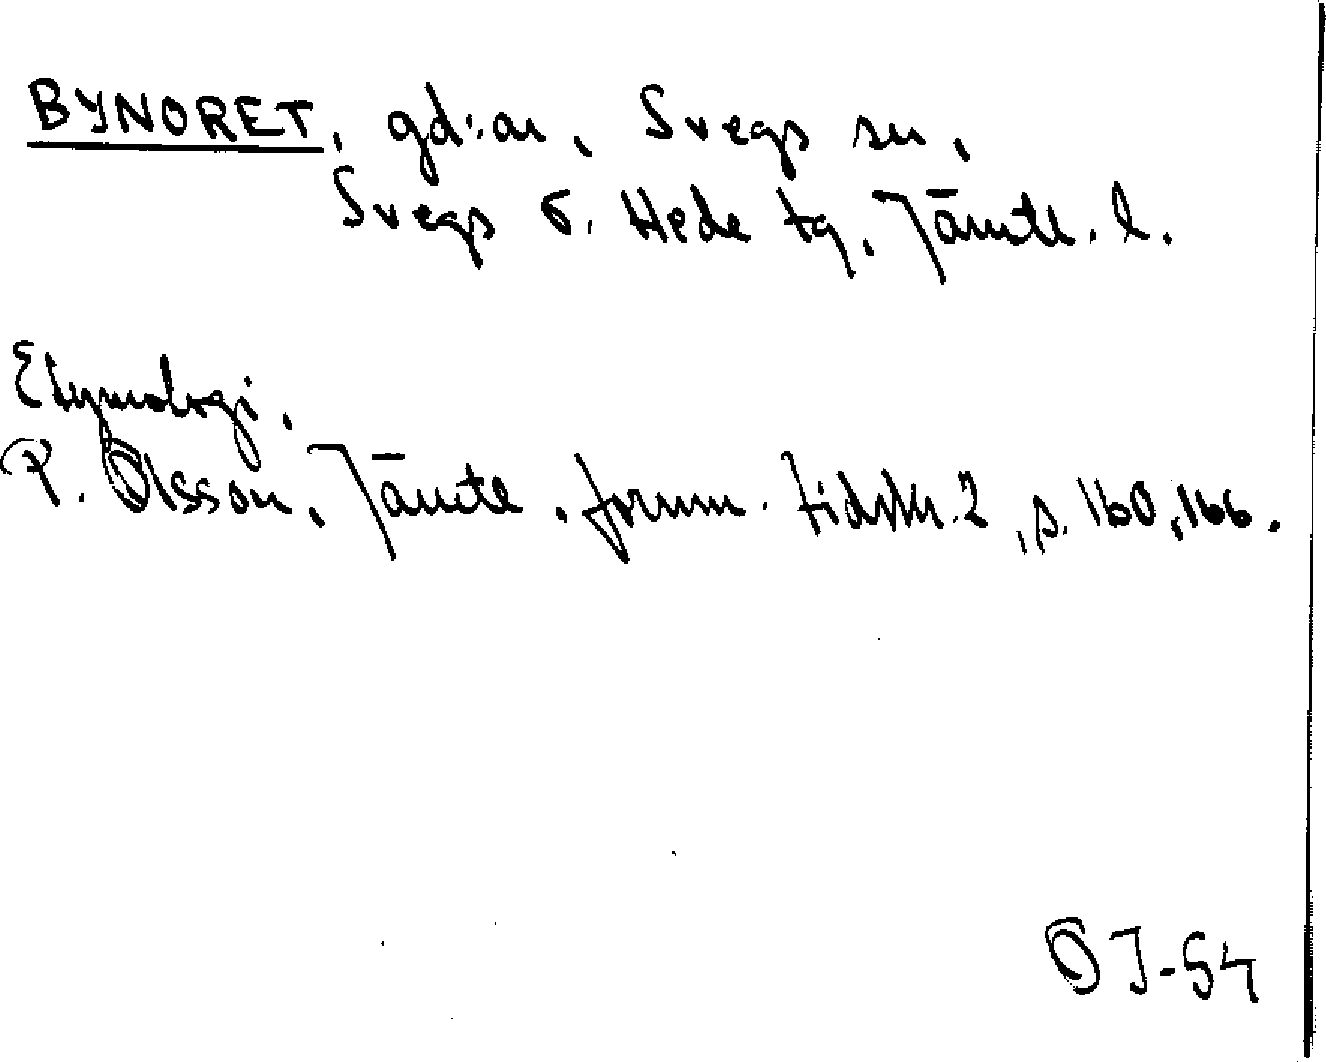 BYNORET, gd:ar, Svegs sn,
Svegs o. Hede tg, Jämtl. l.
Etymologi.
P. Olsson, Jämtl. fornm. tidskr. 2, s. 160, 166.
ÖJ-54